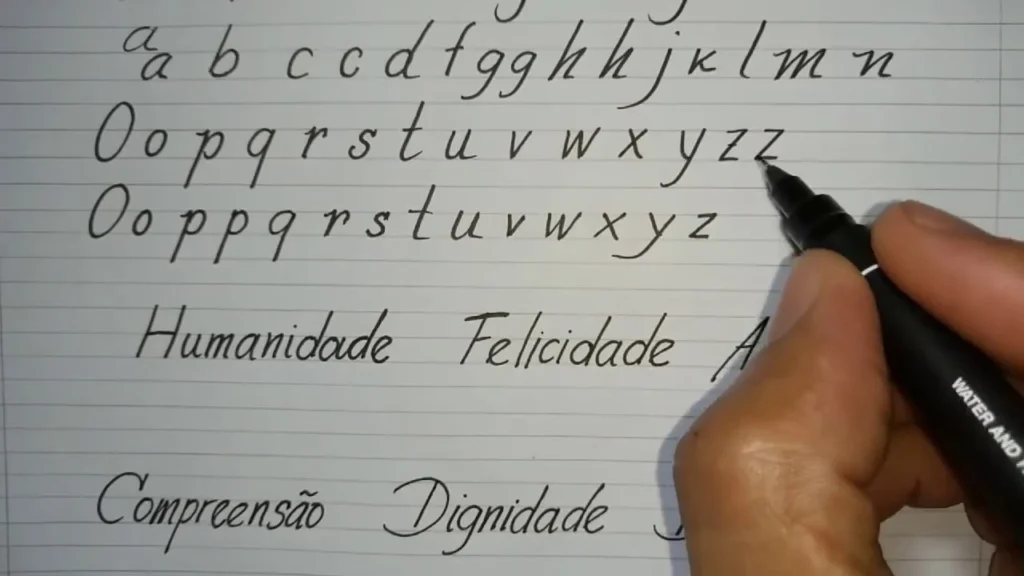 a
a b c c d f g g h h j k l m n
O o p q r s t u v w x y z z
O o p p q r s t u v w x y z
Humanidade Felicidade
Compreensão Dignidade
WATER AND